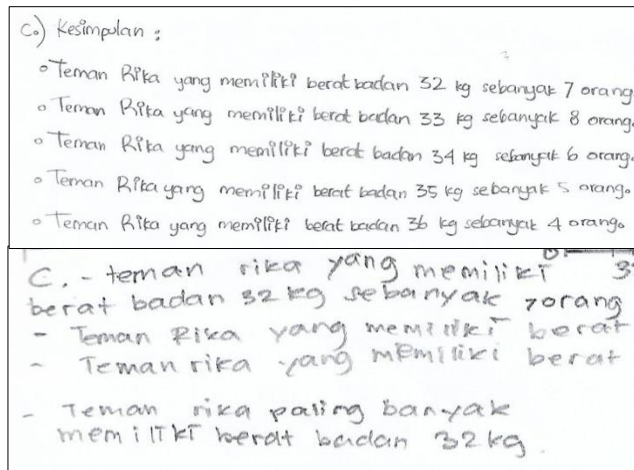 C.) Kesimpulan :
◦ Teman Rika yang memiliki berat badan 32 kg sebanyak 7 orang.
◦ Teman Rika yang memiliki berat badan 33 kg sebanyak 8 orang.
◦ Teman Rika yang memiliki berat badan 34 kg sebanyak 6 orang.
◦ Teman Rika yang memiliki berat badan 35 kg sebanyak 5 orang.
◦ Teman Rika yang memiliki berat badan 36 kg sebanyak 4 orang.
C. - teman rika yang memiliki 3
berat badan 32 kg sebanyak 7orang
- Teman Rika yang memiliki berat
- Teman rika yang memiliki berat
- Teman rika paling banyak
memiliki berat badan 32 kg.